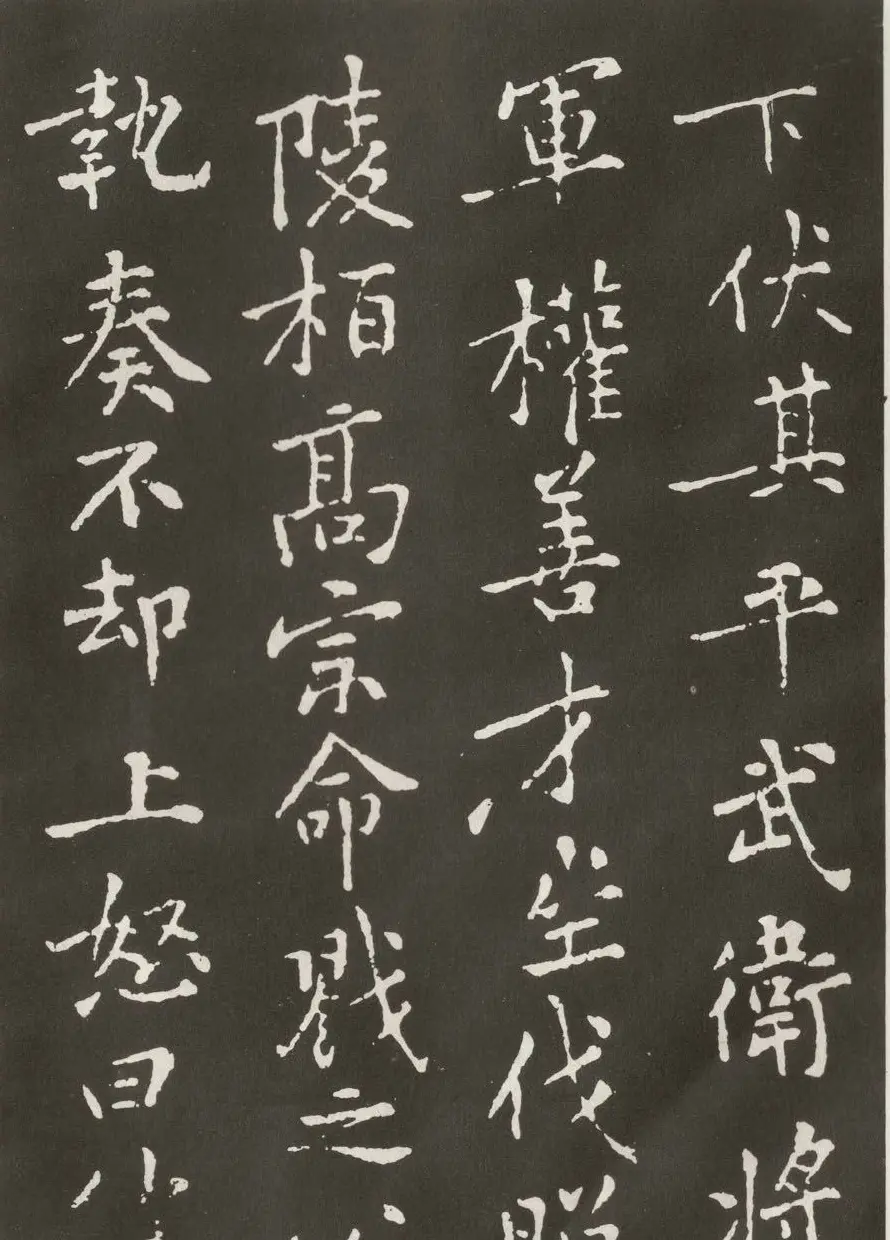 下伏其平武衛將
軍權善才坐伐昭
陵栢高宗命戮之
執奏不却上怒曰